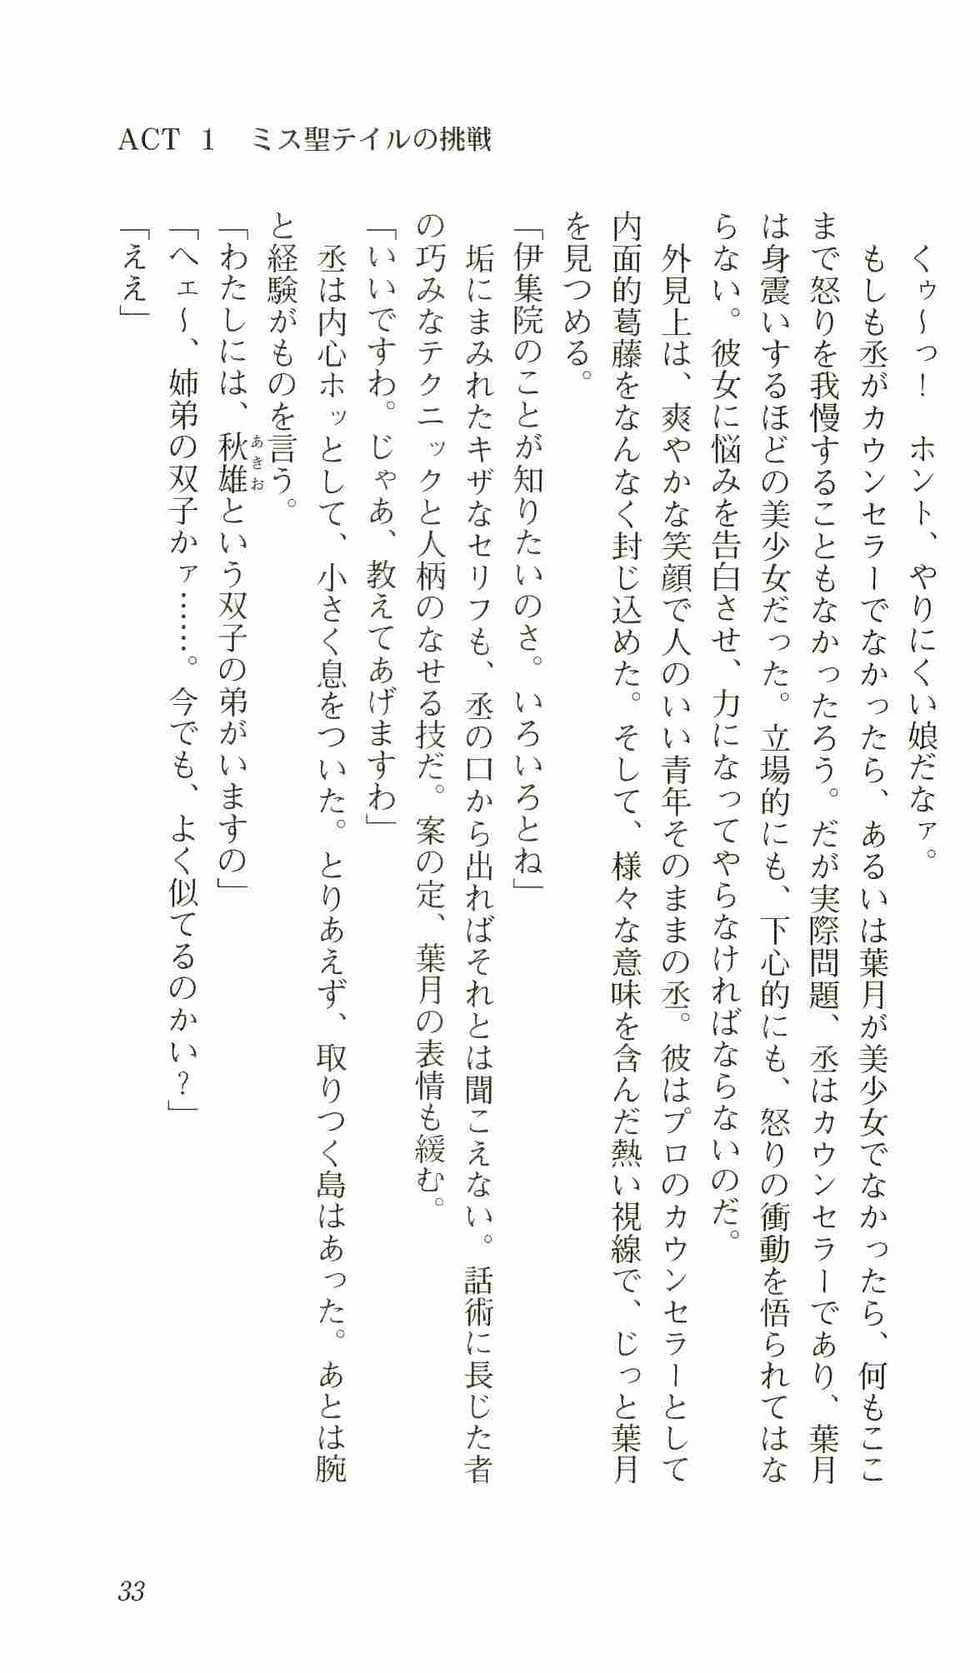 ACT 1 ミス聖テイルの挑戦
くゥ～っ！ ホント、やりにくい娘だなァ。
もしも丞がカウンセラーでなかったら、あるいは葉月が美少女でなかったら、何もここ
まで怒りを我慢することもなかったろう。だが実際問題、丞はカウンセラーであり、葉月
は身震いするほどの美少女だった。立場的にも、下心的にも、怒りの衝動を悟られてはな
らない。彼女に悩みを告白させ、力になってやらなければならないのだ。
外見上は、爽やかな笑顔で人のいい青年そのままの丞。彼はプロのカウンセラーとして
内面的葛藤をなんなく封じ込めた。そして、様々な意味を含んだ熱い視線で、じっと葉月
を見つめる。
「伊集院のことが知りたいのさ。いろいろとね」
垢にまみれたキザなセリフも、丞の口から出ればそれとは聞こえない。話術に長じた者
の巧みなテクニックと人柄のなせる技だ。案の定、葉月の表情も緩む。
「いいですわ。じゃあ、教えてあげますわ」
丞は内心ホッとして、小さく息をついた。とりあえず、取りつく島はあった。あとは腕
と経験がものを言う。
「わたしには、秋雄という双子の弟がいますの」
あきお
「ヘェ～、姉弟の双子かァ……。今でも、よく似てるのかい？」
「ええ」
33